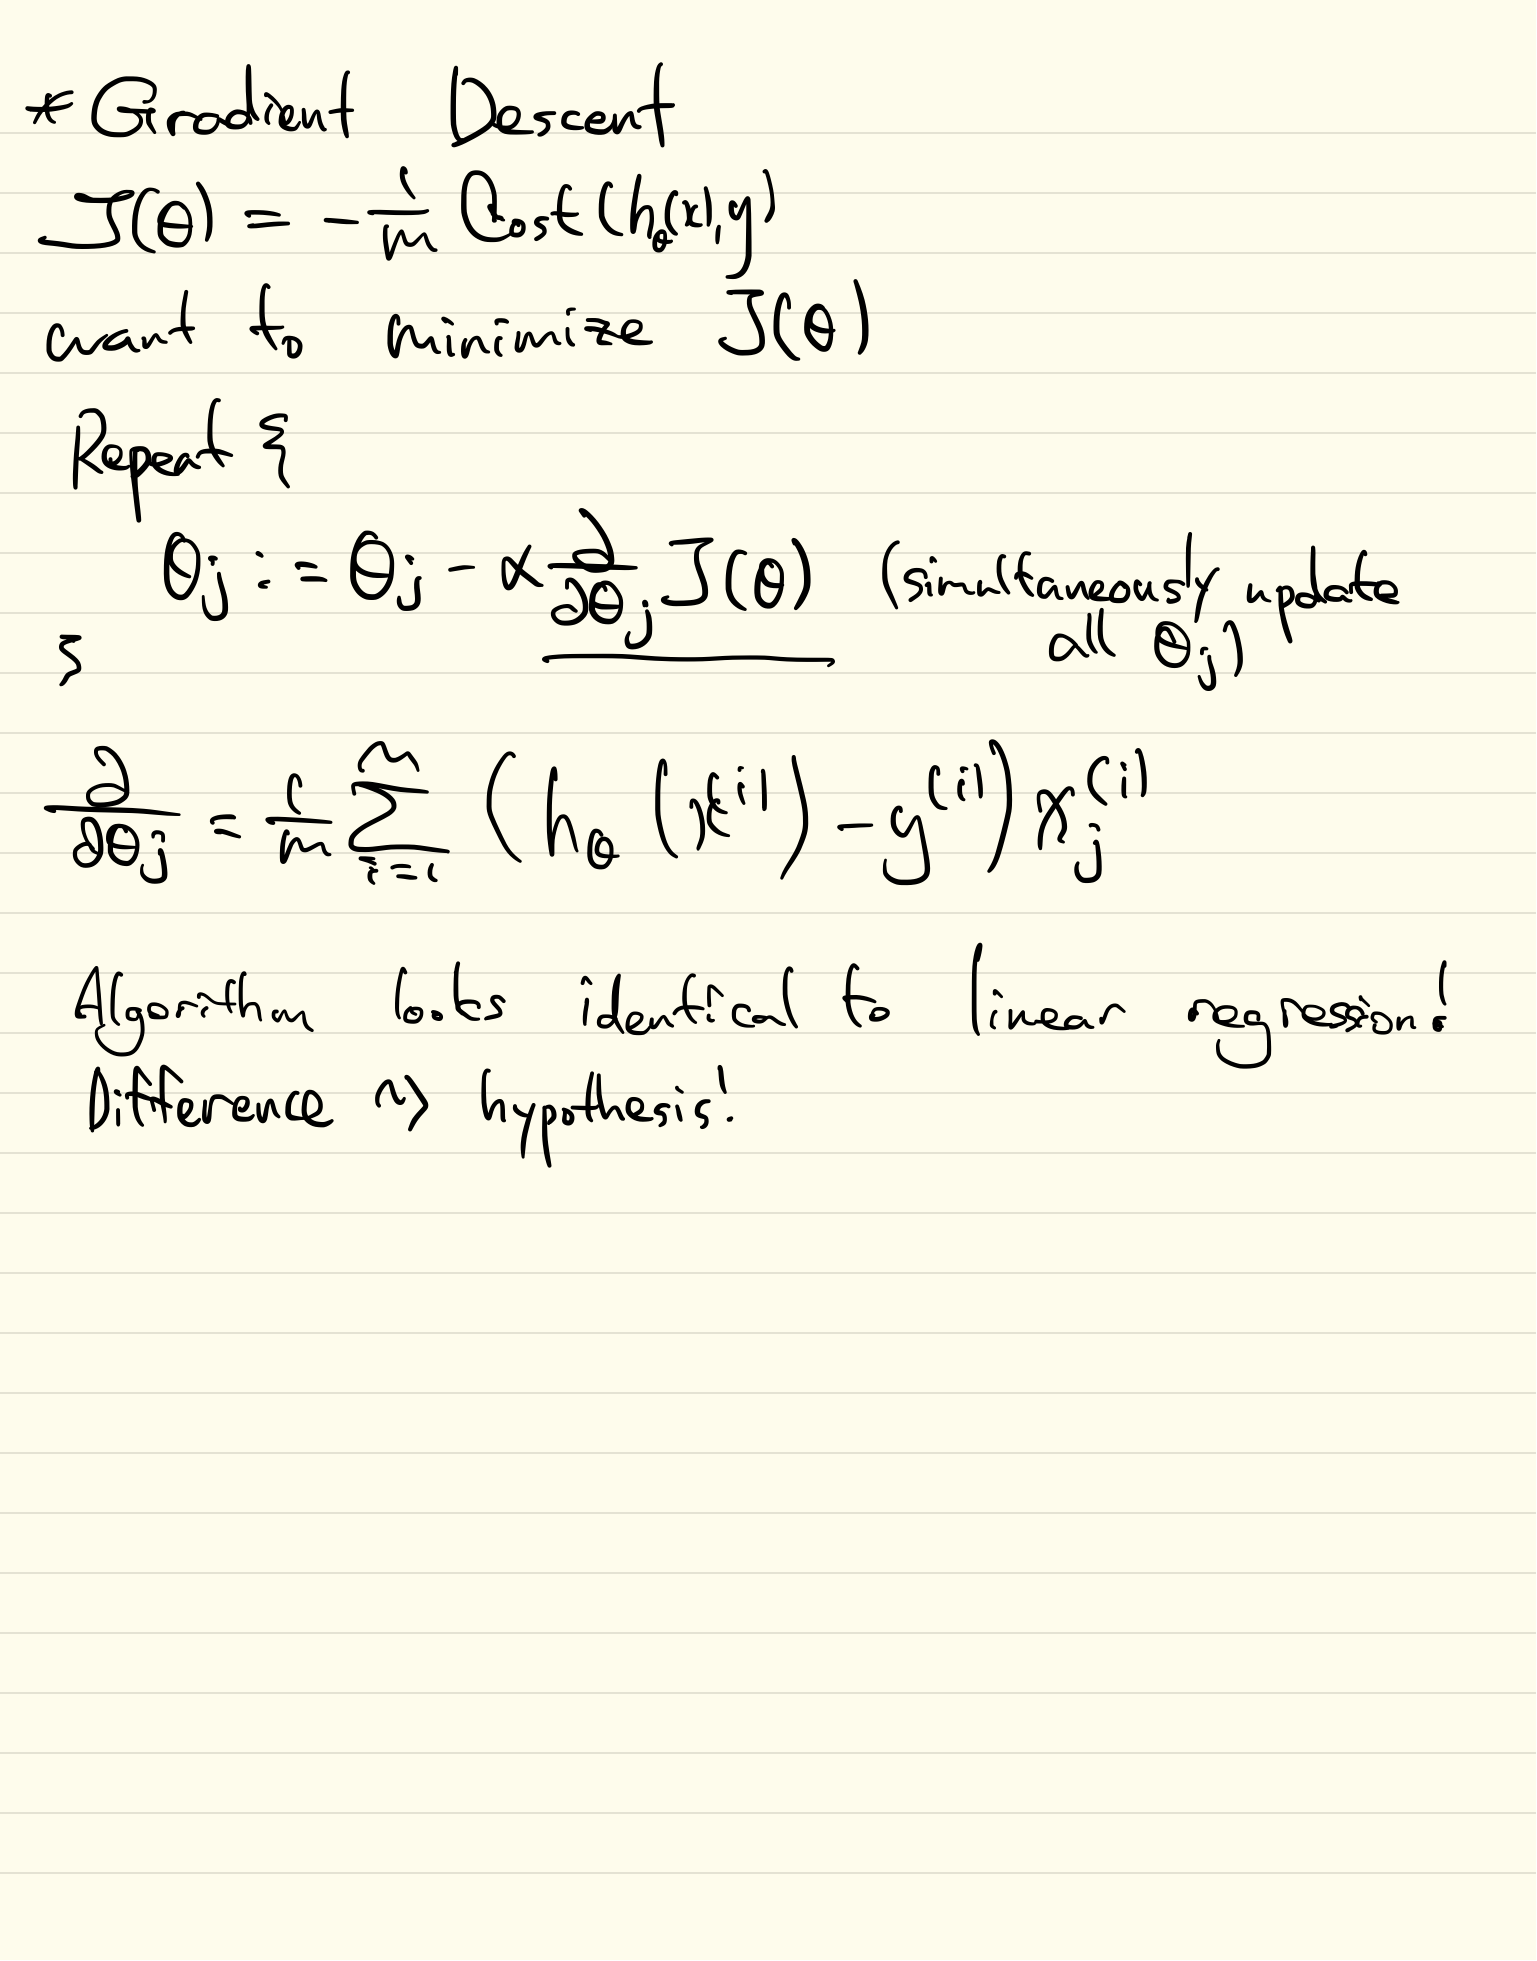 * Gradient Descent
J(θ) = -1/m Cost(h_θ(x), y)
want to minimize J(θ)
Repeat {
θ_j := θ_j - α ∂/∂θ_j J(θ) (simultaneously update
all θ_j)
}
∂/∂θ_j = 1/m Σ_{i=1}^{m} (h_θ(x^(i)) - y^(i)) x_j^(i)
Algorithm looks identical to linear regression!
Difference ~> hypothesis!